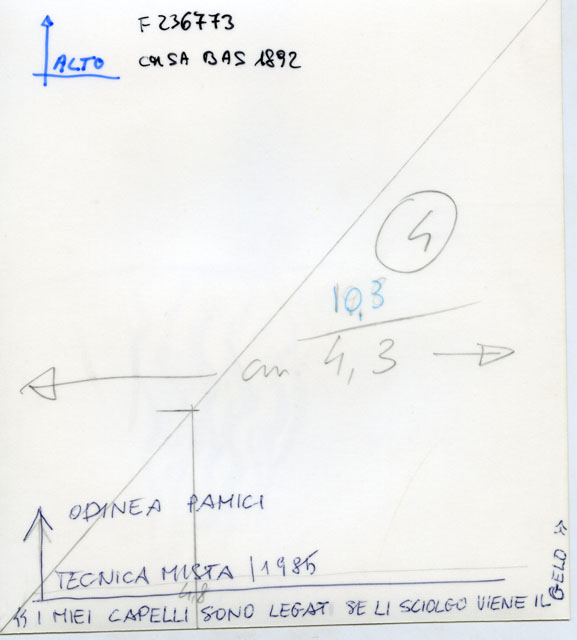 F 236773
ALTO
CASA BAS 1892
4
10,3
cm 4,3
ODINEA PAMICI
TECNICA MISTA / 1985
4,8
« I MIEI CAPELLI SONO LEGATI SE LI SCIOLGO VIENE IL GELO »